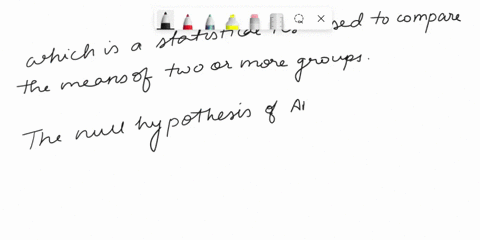 which is a statistical used to compare
the means of two or more groups.
The null hypothesis of AN